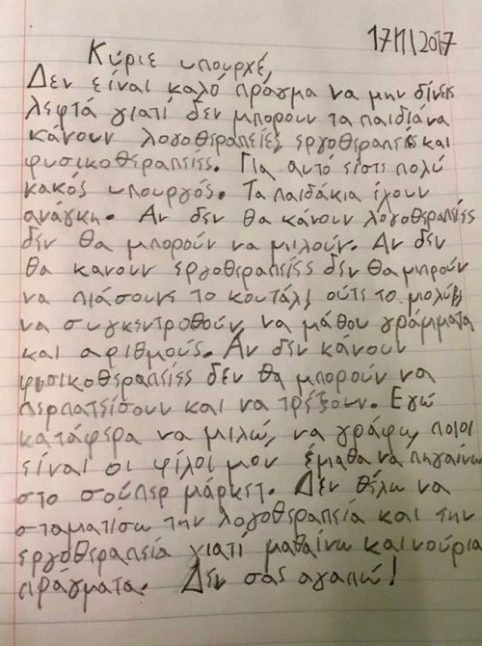 17/1/2017
Κύριε υπουρχέ,
Δεν είναι καλό πράγμα να μην δίνεις
λεφτά γιατί δεν μπορουν τα παιδιά να
κάνουν λογοθεραπείες εργοθεραπείες και
φυσικοθεραπείες. Για αυτό είστι πολύ
κακός υπουργός. Τα παιδάκια έχουν
ανάγκη. Αν δεν θα κάνουν λόγοθεραπείες
δεν θα μπορούν να μιλούν. Αν δεν
θα κανουν εργοθεραπείες δεν θα μπρούν
να πιάσουνε το κουτάλι ούτε το μολύβι
να συγκεντροθούν, να μάθου γράμματα
και αριθμούς. Αν δεν κάνουν
φυσικοθέραπείες δεν θα μπορούν να
περπατείσουν και να τρέξουν. Εγώ
κατάφερα να μιλώ, να γράφω, ποιοι
είναι οι φίλοι μου έμαθα να πηγαίνω
στο σούπερ μάρκετ. Δεν θέλω να
σταματίσω την λογοθεραπεία και την
εργοθεραπεία γιατί μαθαίνω καινούρια
πράγματα. Δεν σας αγαπώ!